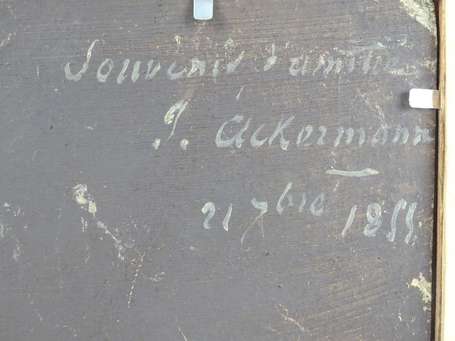 Souvenir d'amitié
J. Ackermann
21 7bre 1855